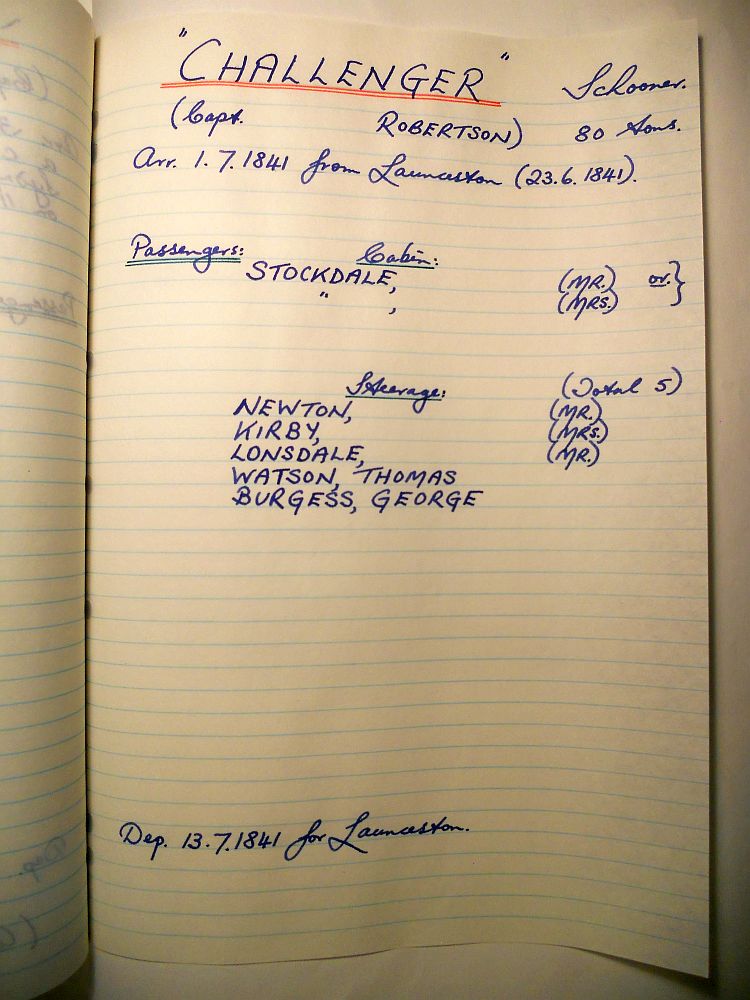 "CHALLENGER" Schooner.
(Capt. ROBERTSON) 80 tons.
Arr. 1.7.1841 from Launceston (23.6.1841).
Passengers: Cabin:
STOCKDALE, (MR.) or. }
" , (MRS.)
Steerage: (Total 5)
NEWTON, (MR.)
KIRBY, (MRS.)
LONSDALE, (MR.)
WATSON, THOMAS
BURGESS, GEORGE
Dep. 13.7.1841 for Launceston.